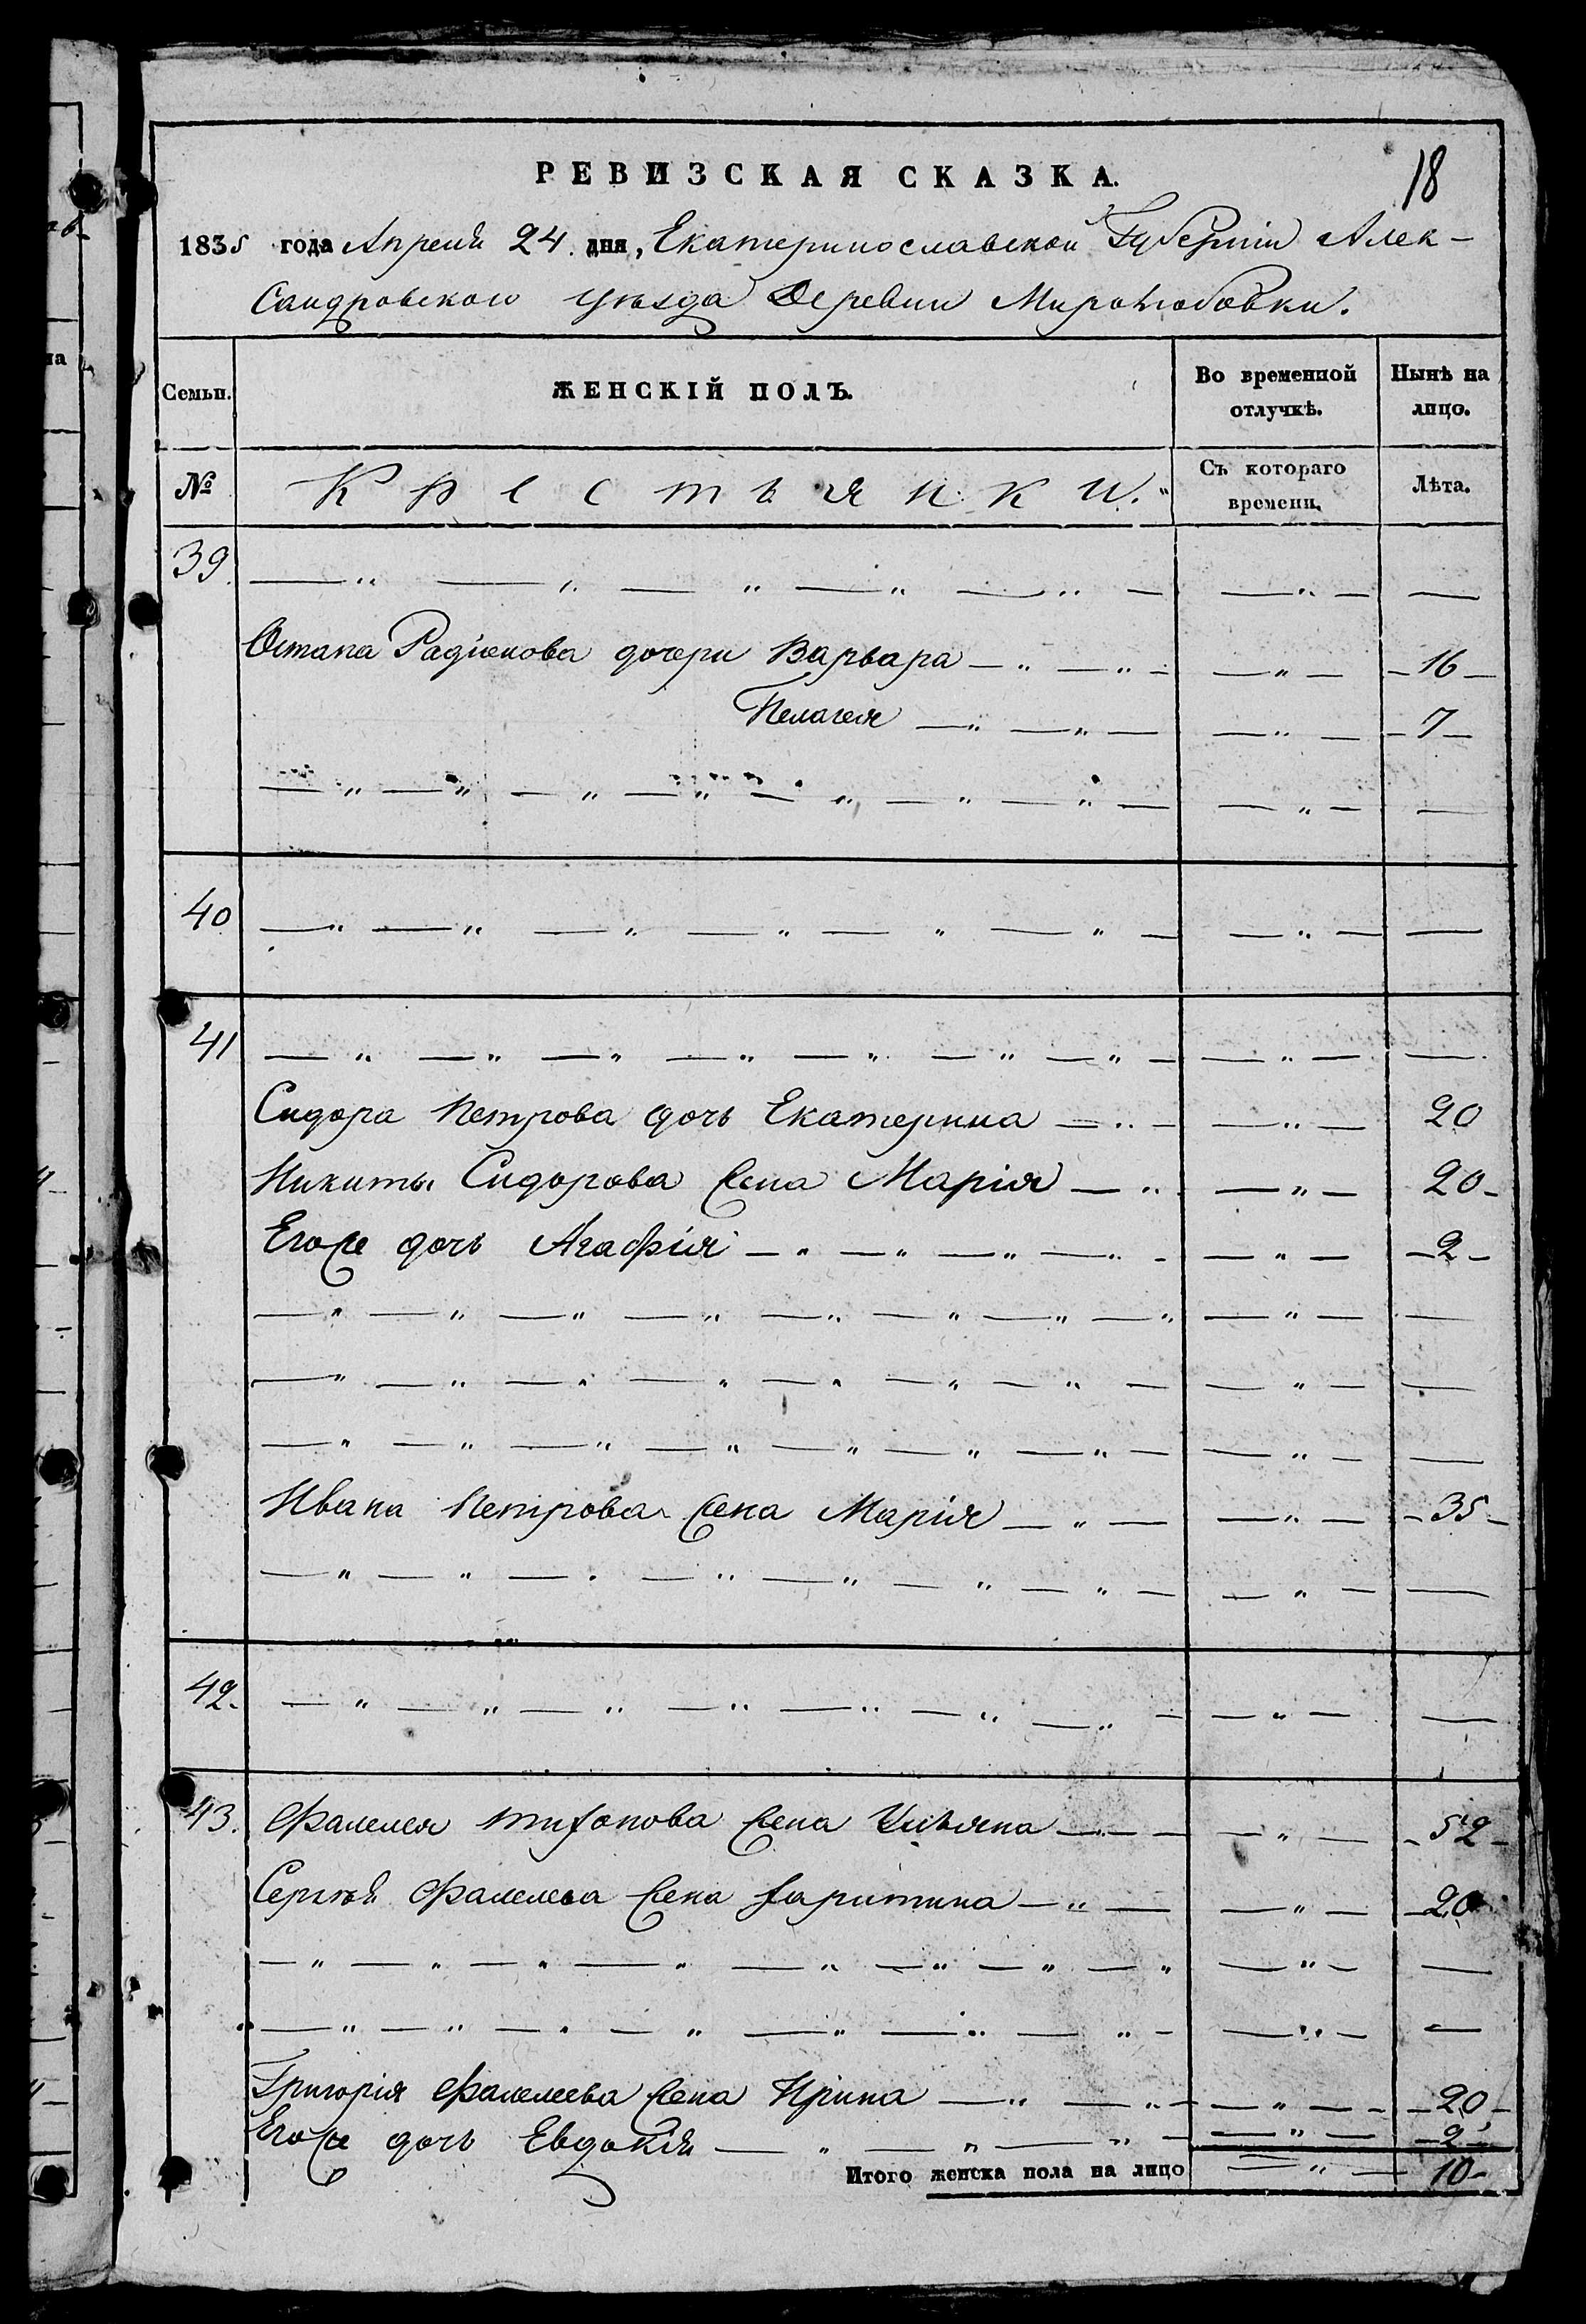 18
РЕВИЗСКАЯ СКАЗКА.
1835 года Апреля 24. дня, Екатеринославской Губерніи Алек-
сандровского уѣзда Деревни Миролюбовки.
Семьи. ЖЕНСКІЙ ПОЛЪ. Во временной отлучкѣ. Нынѣ на лицо.
№ Крестьянки. Съ котораго времени. Лѣта.
39.
Остапа Радіонова дочери Варвара 16
Пелагея 7
40
41
Сидора Петрова дочь Екатерина 20
Никиты Сидорова жена Марія 20
Егоже дочь Агафія 2
Ивана Петрова жена Марія 35
42.
43. Фалелея жена Ульяна 52
Сергѣя Фалелева жена Харитина 20
Григорія Фалелеева жена Ирина 20
Егоже дочь Евдокія 2
Итого женска пола на лицо 10